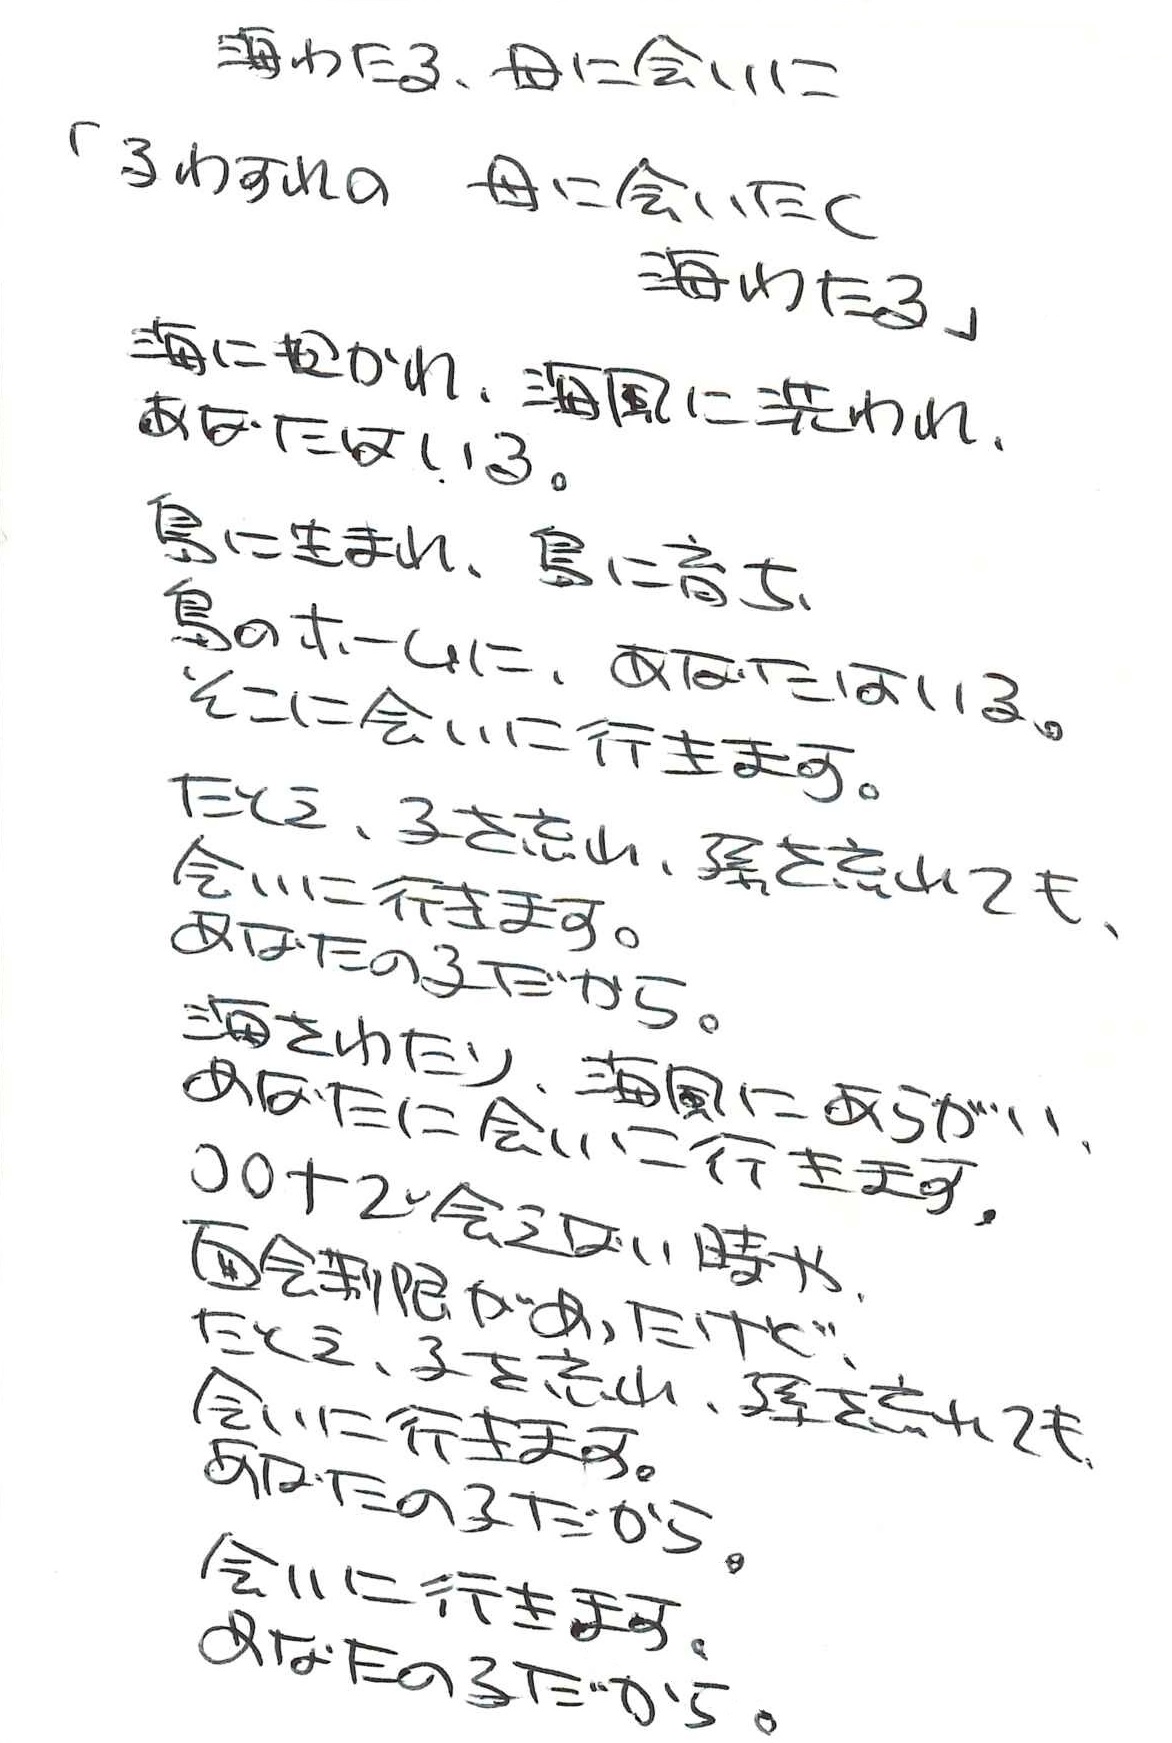 海わたる、母に会いに
「子わすれの 母に会いたく
海わたる」
海に抱かれ、海風に洗われ、
あなたはいる。
島に生まれ、島に育ち、
島のホームに、あなたはいる。
そこに会いに行きます。
たとえ、子を忘れ、孫を忘れても、
会いに行きます。
あなたの子だから。
海をわたり、海風にあらがい、
あなたに会いに行きます。
コロナで会えない時や、
面会制限があったけど、
たとえ、子を忘れ、孫を忘れても、
会いに行きます。
あなたの子だから。
会いに行きます。
あなたの子だから。